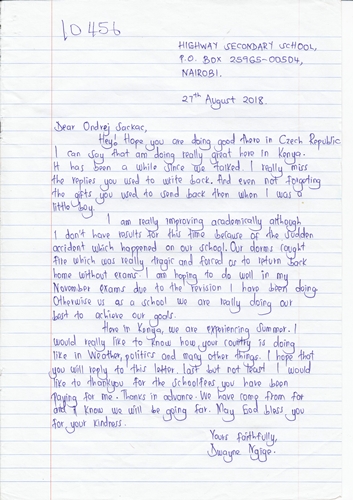 ID 456
HIGHWAY SECONDARY SCHOOL,
P.O. BOX 25965-00504,
NAIROBI.
27th August 2018.
Dear Ondrej Sackac,
Hey! Hope you are doing good there in Czech Republic
I can say that am doing really great here in Kenya.
It has been a while since we talked. I really miss
the replies you used to write back. And even not forgetting
the gifts you used to send back then when I was a
little boy.
I am really improving academically although
I don't have results for this time because of the sudden
accident which happened on our school. Our dorms caught
fire which was really tragic and forced us to return back
home without exams. I am hoping to do well in my
November exams due to the revision I have been doing.
Otherwise us as a school we are really doing our
best to achieve our goals.
Here in Kenya, we are experiencing summer. I
would really like to know how your country is doing
like in Weather, politics and many other things. I hope that
you will reply to this letter. Last but not least I would
like to thankyou for the schoolfees you have been
paying for me. Thanks in advance. We have come from far
and I know we will be going far. May God bless you
for your kindness.
Yours faithfully,
Dwayne Ngigo.